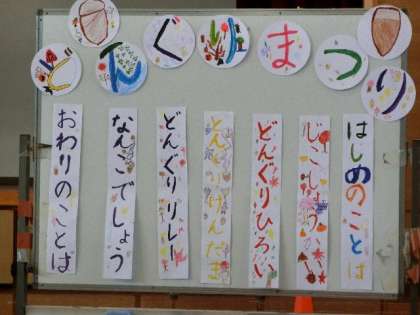 どんぐりまつり
はじめのことば
じこしょうかい
どんぐりひろい
どんぐりけんだま
どんぐりリレー
なんこでしょう
おわりのことば